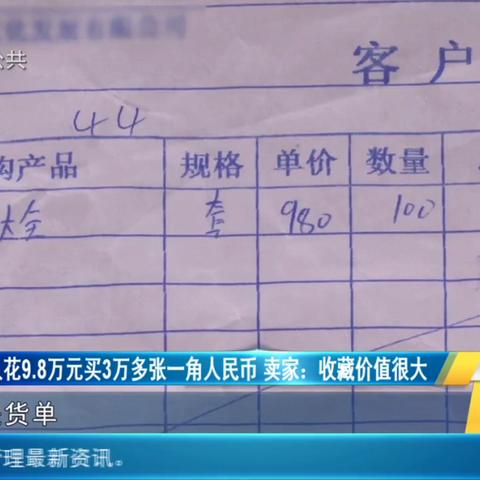 公共
客户
44
购产品 规格 单价 数量
大全 套 980 100
花9.8万元买3万多张一角人民币 卖家：收藏价值很大
货单
管理最新资讯。